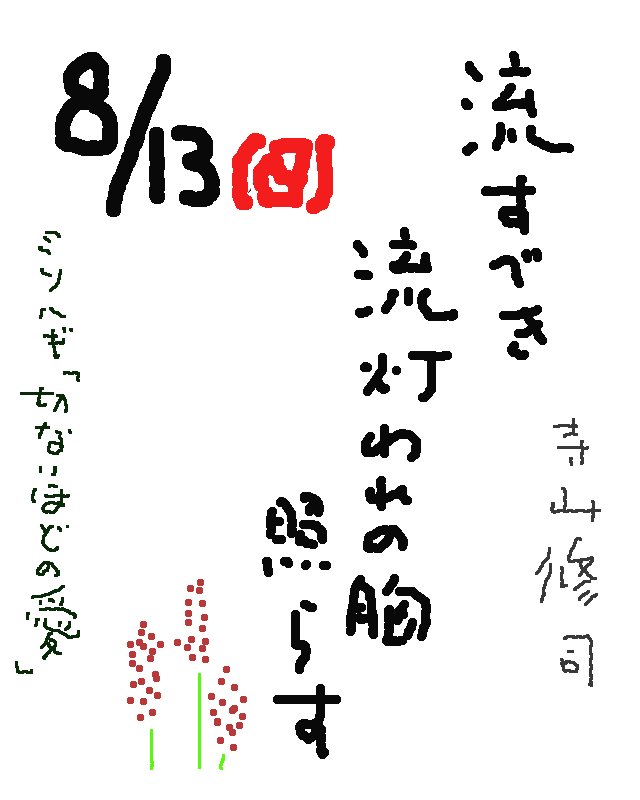 8/13(日)
流すべき
流灯われの胸
照らす
寺山修司
ミソハギ「切ないほどの愛」